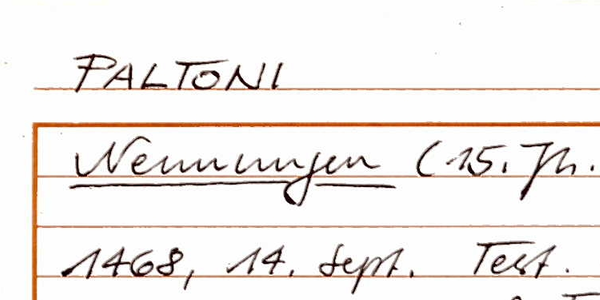 PALTONI
Nennungen (15. Jh.
1468, 14. Sept. Test.